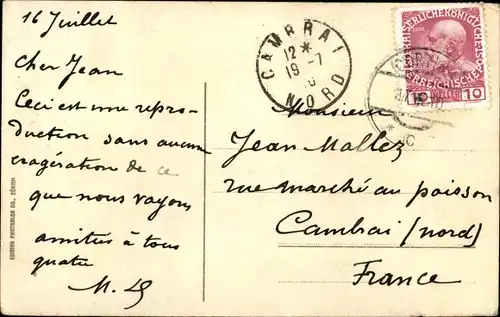 16 Juillet
Cher Jean
Ceci est une repro-
duction sans aucune
exagération de ce
que nous voyons
amitiés à tous
quatre
M.
EDITION PHOTOGLOB CO., ZÜRICH
CAMBRAI
12 *
19 - 7
NORD
10
Monsieur
Jean Mallez
rue marché au poisson
Cambrai (nord)
France